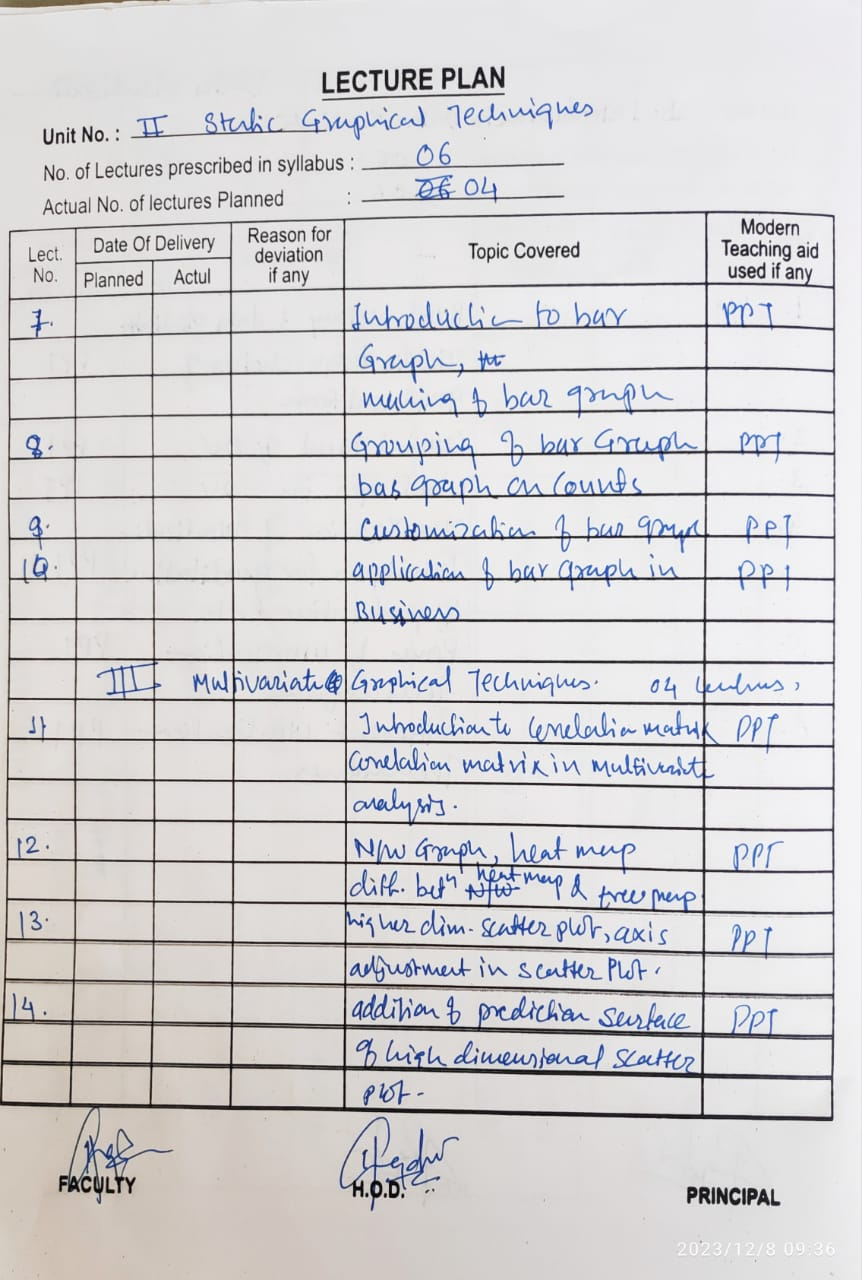 LECTURE PLAN
Unit No. : II Static Graphical Techniques
No. of Lectures prescribed in syllabus : 06
Actual No. of lectures Planned : 06 04
Lect. No. Date Of Delivery Reason for deviation if any Topic Covered Modern Teaching aid used if any
Planned Actul
7. Introduction to bar PPT
Graph,
making of bar graph
8. Grouping of bar Graph PPT
bas graph on Counts
9. Customization of bar graph PPT
10. application of bar Graph in PPT
Business
III Multivariate Graphical Techniques. 04 lectures,
11 Introduction to Correlation matrix PPT
Correlation matrix in multivariate
analysis.
12. N/w Graph, heat map PPT
diff. betn N/W heat map & tree map
13. higher dim. scatter plot, axis PPT
adjustment in scatter Plot.
14. addition of prediction surface PPT
of high dimensional scatter
plot.
FACULTY H.O.D. PRINCIPAL
2023/12/8 09:36